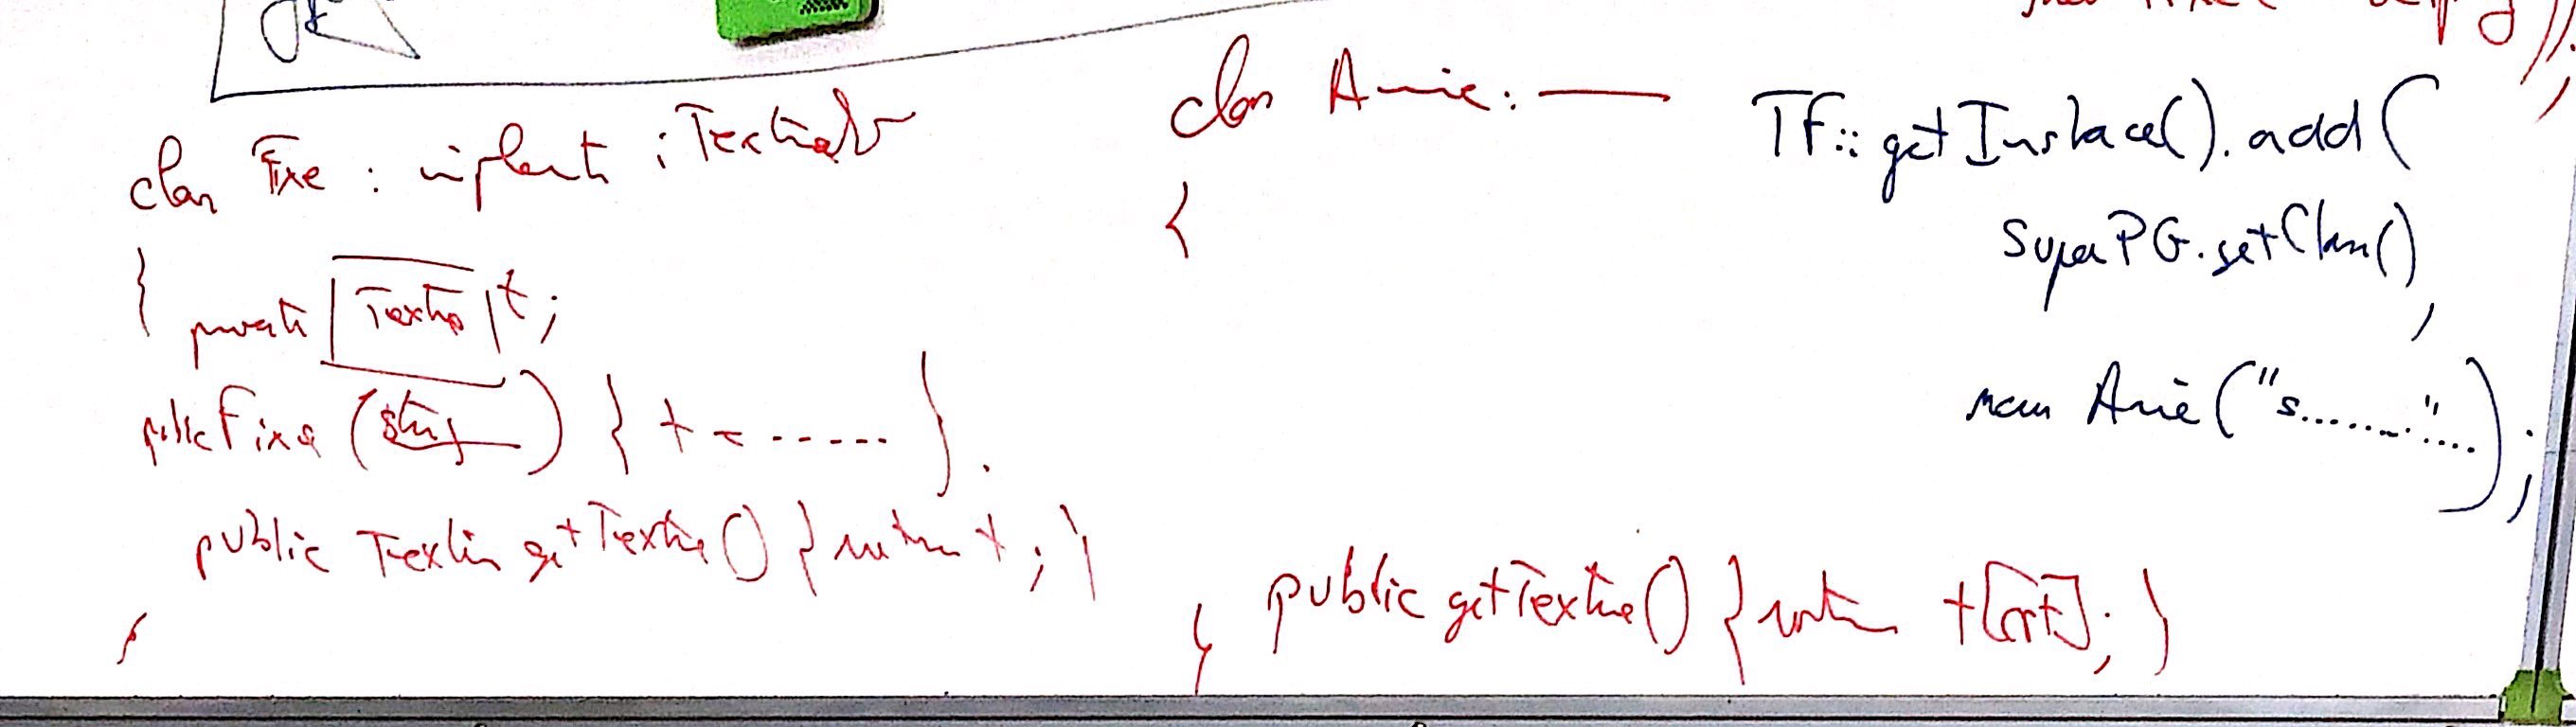 OK
class Fixe : implent iTextiable
{
private Texture t;
public Fixe (string) { t = ------ }.
public Textur getTextue() { return t; }
}
class Anie: ——
{
public getTextue() { return t[crt]; }
}
TF::getInstace().add(
SuperPG.getClass(),
new Anie("s........"....);